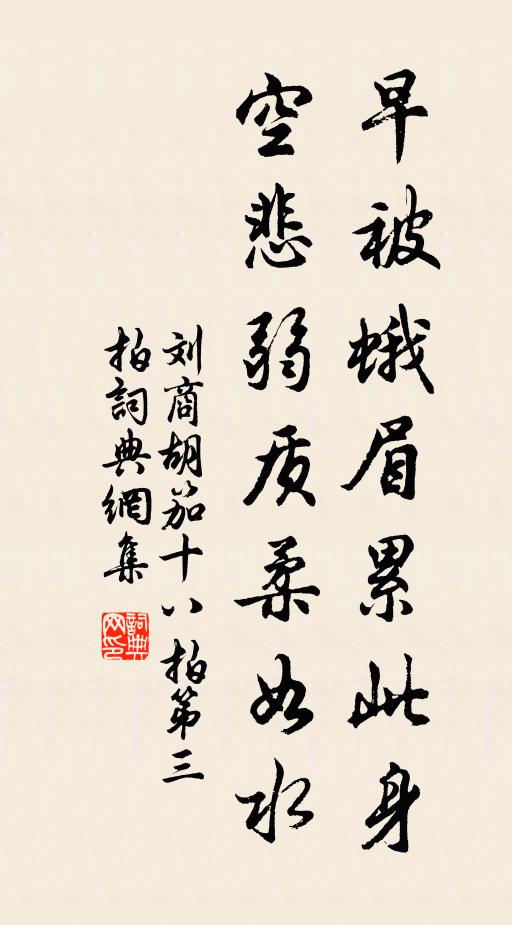 早被蛾眉累此身
空悲弱质柔如水
刘商胡笳十八拍第三
拍詞典網集
詞典网印